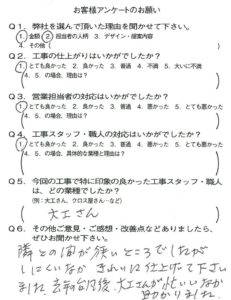 お客様アンケートのお願い
Q１．弊社を選んで頂いた理由を聞かせて下さい。
1．金額 2 担当者の人柄 3．デザイン・提案内容
4．その他（ ）
Q２．工事の仕上がりはいかがでしたか？
1．とても良かった 2．良かった 3．普通 4．不満 5．大いに不満
4．5．の場合、理由は？
Q３．営業担当者の対応はいかがでしたか？
1．とても良かった 2．良かった 3．普通 4．悪い 5．とても悪かった
4．5．の場合、理由は？
Q４．工事スタッフ・職人の対応はいかがでしたか？
1．とても良かった 2．良かった 3．普通 4．悪い 5．とても悪かった
4．5．の場合、具体的な業種と理由は？
Q５．今回の工事で特に印象の良かった工事スタッフ・職人
は、どの業種でしたか？
（例：大工さん、クロス屋さん…など）
大工さん
Q６．その他ご意見・ご感想・改善点などありましたら、
ぜひお聞かせ下さい。
隣との間が狭いところでしたが
しにくいなか きれいに仕上げて下さい
ました 大工さんが忙しいなか
助かりました